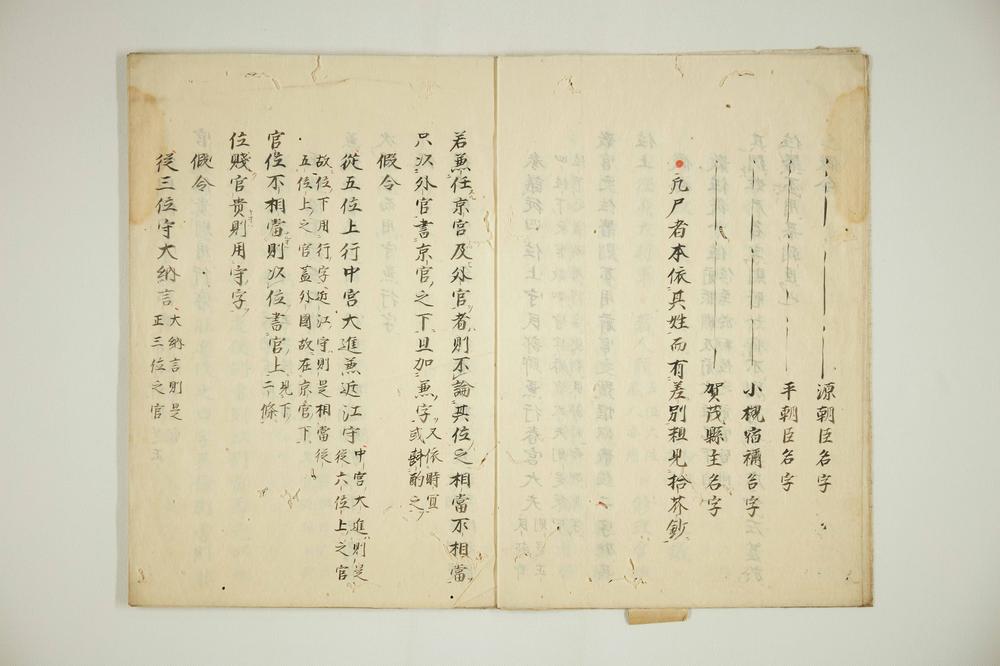 源朝臣名字
平朝臣名字
小槻宿祢名字
賀茂縣主名字
凢尸者本依其姓而有差別粗見拾芥鈔
若兼任京官及外官者則不論其位之相當不相當
只以外官書京官之下且加兼字又依時冝
或斟酌之
假令
從五位上行中宮大進兼近江守中宮大進則是
從六位上之官
故位下用行字近江守則是相當從
五位上之官蓋外國故在京官下
官位不相當則以位書官上見下
二條
位賤官貴則用守字
假令
從三位守大納言大納言則是
正三位之官